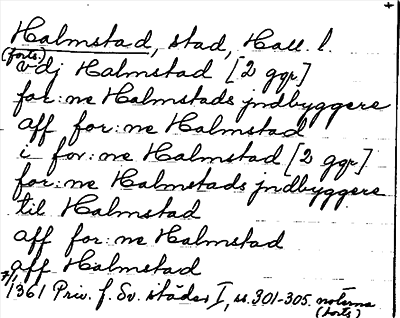 Halmstad, stad, Hall. l.
(forts.)
vdj Halmstad [2 ggr]
for:ne Halmstads jndbyggere
aff for:ne Halmstad
i for:ne Halmstad [2 ggr]
for:ne Halmstads jndbyggere
til Halmstad
aff for:ne Halmstad
aff Halmstad
7/1 1361 Priv. f. Sv. städer I, ss. 301-305. noterna
(forts)